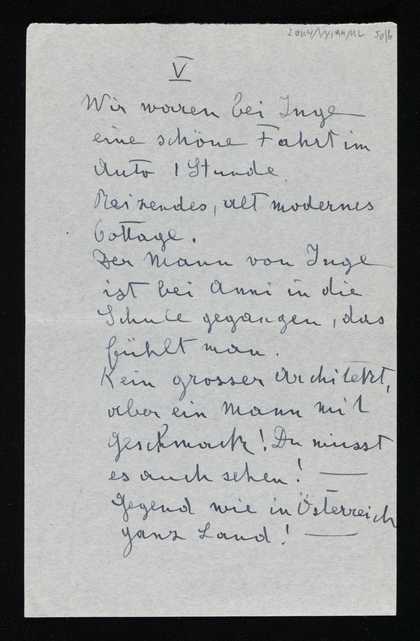 V
Wir waren bei Inge
eine schöne Fahrt im
Auto 1 Stunde
Reizendes, alt modernes
Cottage.
Der Mann von Inge
ist bei Anni in die
Schule gegangen, das
fühlt man.
Kein grosser Architekt,
aber ein Mann mit
Geschmack! Du musst
es auch sehen! —
Gegend wie in Österreich
ganz Land! —